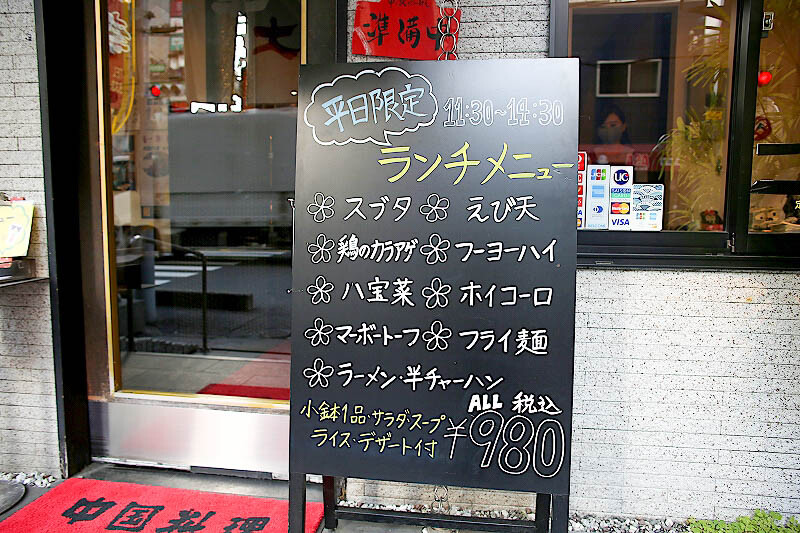 準備中
平日限定 11:30~14:30
ランチメニュー
スブタ えび天
鶏のカラアゲ フーヨーハイ
八宝菜 ホイコーロ
マーボートーフ フライ麺
ラーメン・半チャーハン
小鉢1品・サラダ・スープ
ライス・デザート付
ALL 税込
¥980
JCB UC
SAISON
VISA